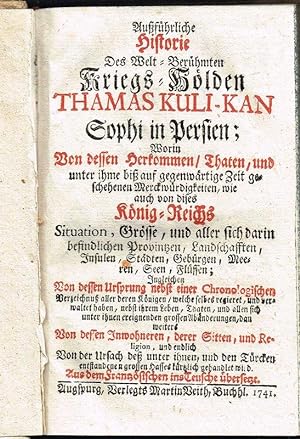 Außführliche
Historie
Des Welt-Berühmten
Kriegs-Hölden
THAMAS KULI-KAN
Sophi in Persien;
Worin
Von dessen Herkommen/ Thaten, und
unter ihme biß auf gegenwärtige Zeit ge-
schehenen Merckwürdigkeiten, wie
auch von dises
König-Reichs
Situation, Grösse, und aller sich darin
befindlichen Provintzen, Landschafften,
Insulen, Städten, Gebürgen, Mee-
ren, Seen, Flüssen;
Ingleichen
Von dessen Ursprung nebst einer Chronologischen
Verzeichnuß aller deren Königen, welche selbes regieret, und ver-
waltet haben, nebst ihrem Leben, Thaten, und allen sich
unter ihnen ereignenden grossen Abänderungen, dan
weiters
Von dessen Inwohneren, derer Sitten, und Re-
ligion, und endlich
Von der Ursach deß unter ihnen, und den Türcken
entstandenen grossen Hasses kürtzlich gehandlet wird.
Aus dem Frantzösischen ins Teutsche übersetzt.
Augspurg, Verlegts Martin Veith, Buchhl. 1741.